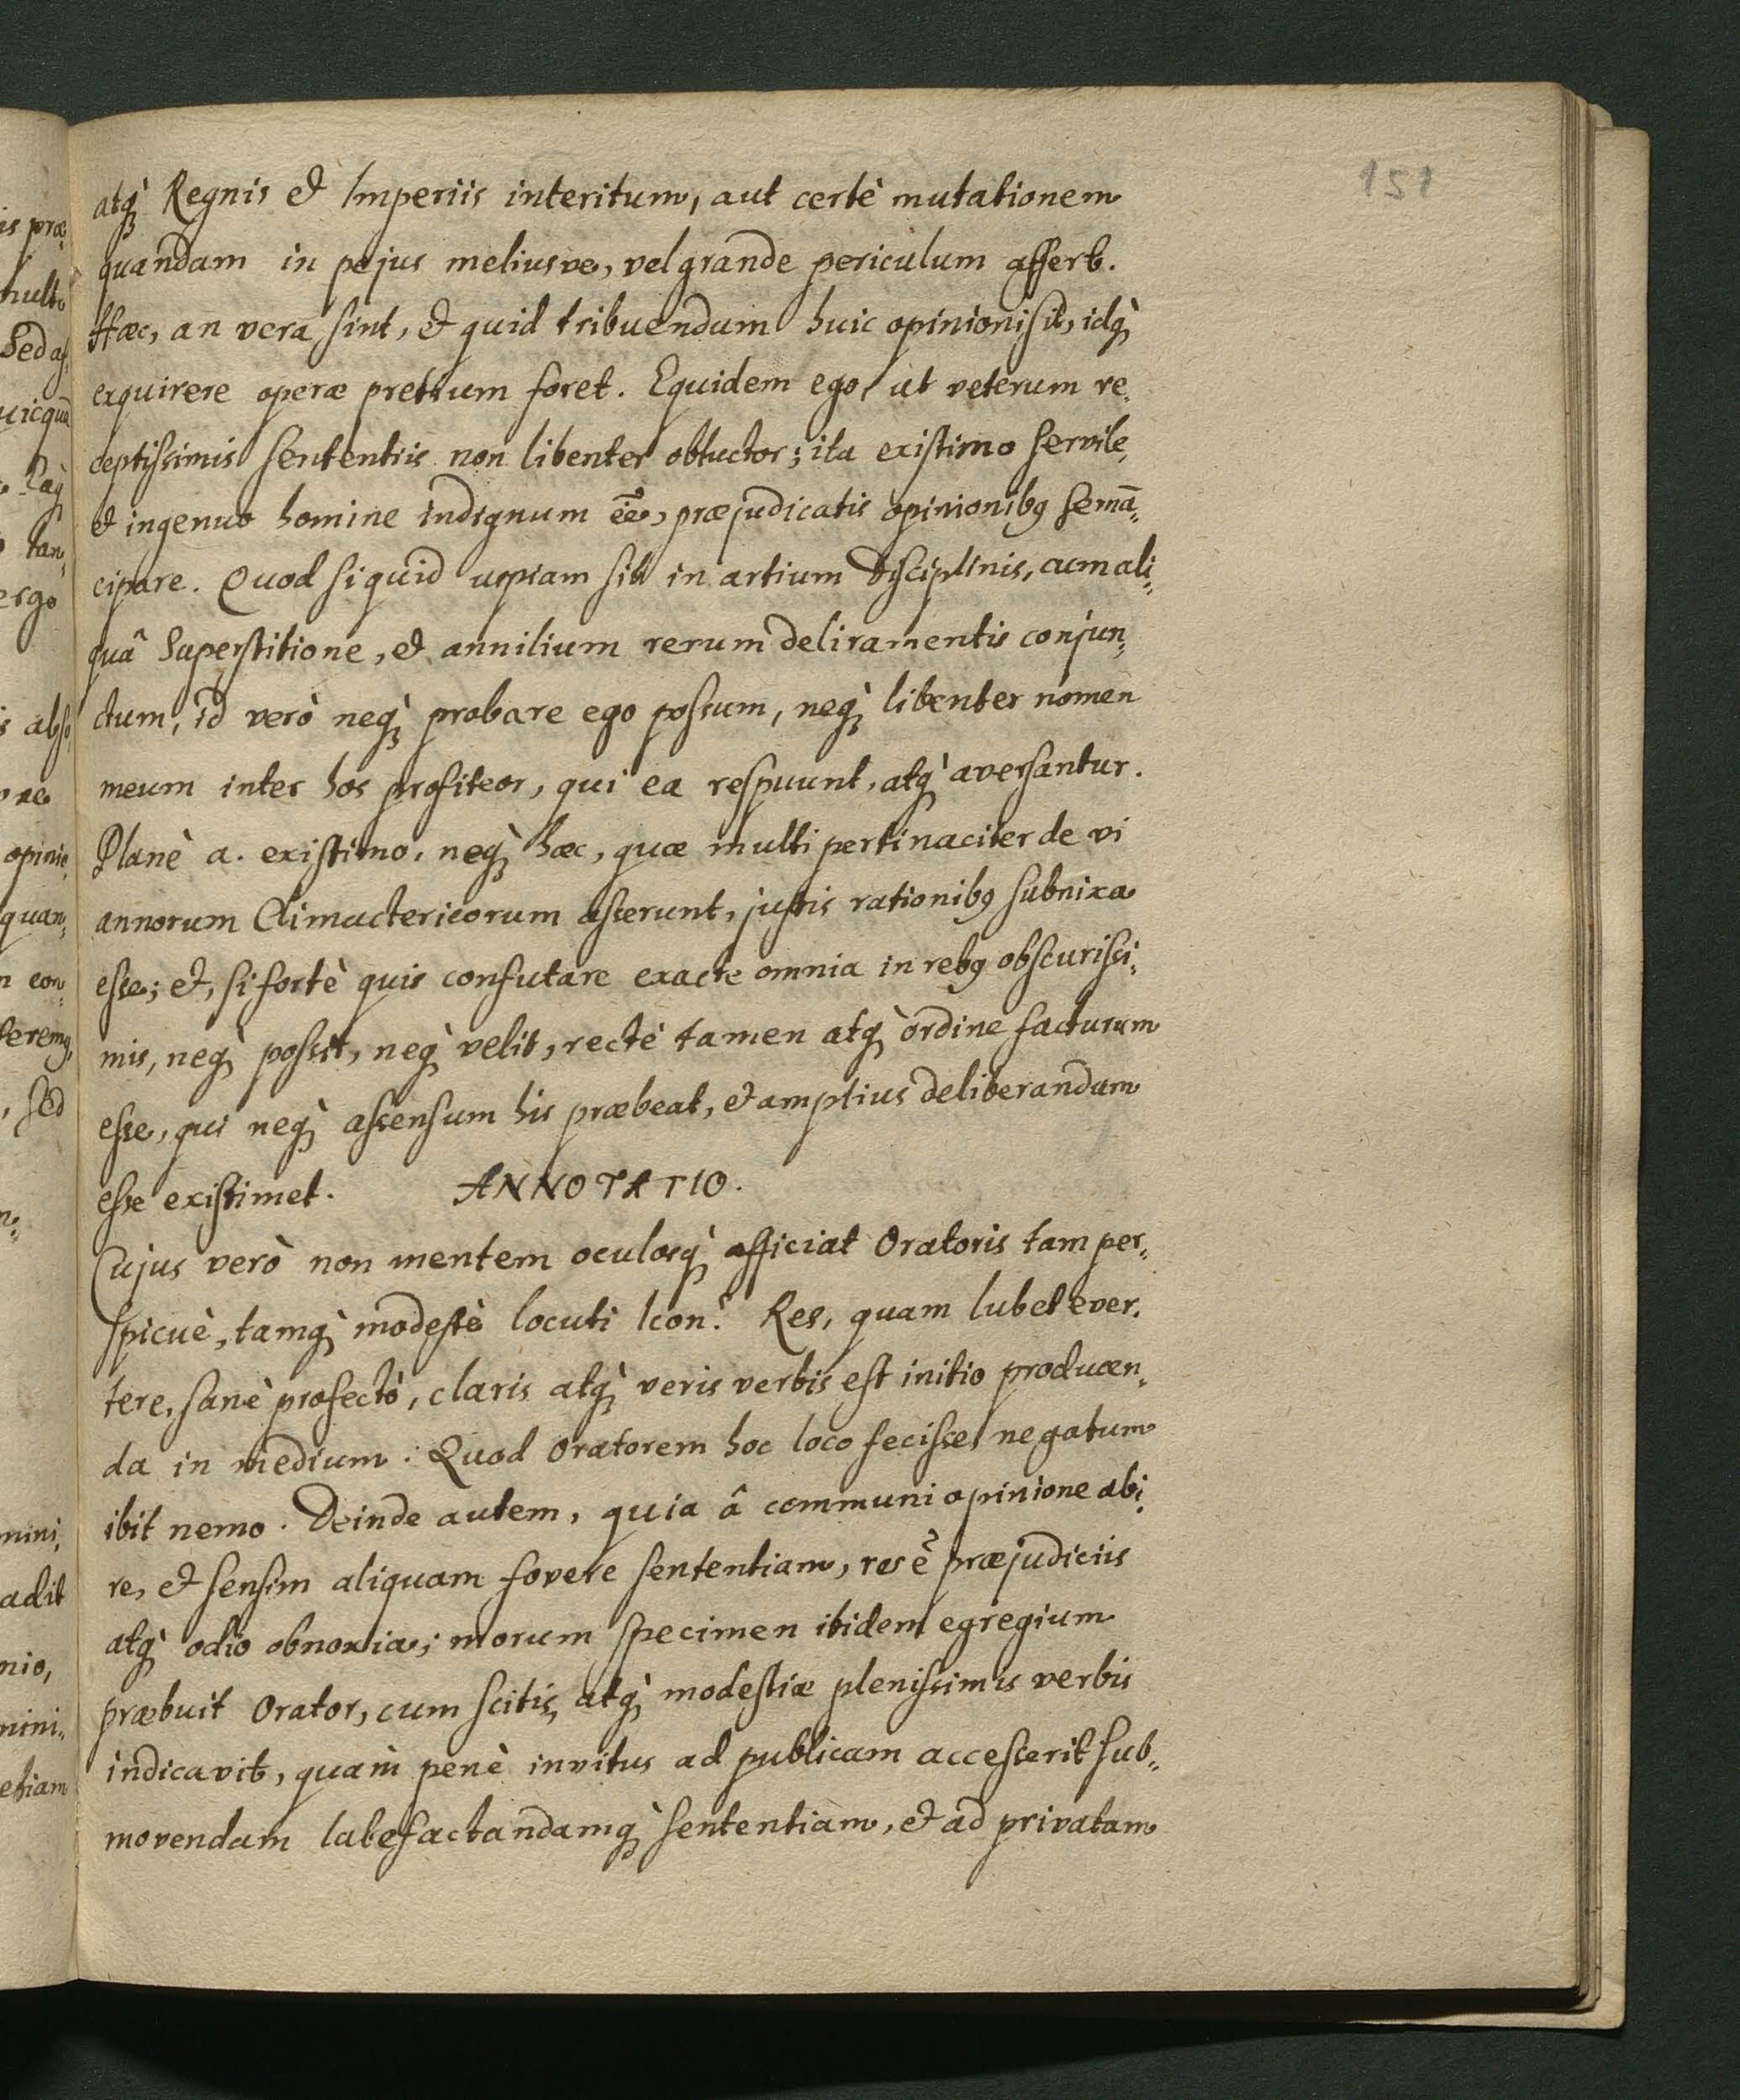 151
atq; Regnis et Imperiis interitum, aut certè mutationem
quandam in pejus meliusve, vel grande periculum affert.
Hæc, an vera sint, et quid tribuendum huic opinioni sit, idq;
exquirere operæ pretium foret. Equidem ego, ut veterum re,
ceptissimis sententiis non libenter obluctor; ita existimo servile,
et ingenuo homine indignum ēē, præjudicatis opinionibꝯ semā,,
cipare. Quod si quid uspiam sit in artium disciplinis, cum ali,,
quâ superstitione, et annilium rerum deliramentis conjun,,
ctum, id verò neq; probare ego possum, neq; libenter nomen
meum inter hos profiteor, qui ea respuunt, atq; aversantur.
Planè a. existimo, neq; hæc, quæ multi pertinaciter de vi
annorum Climactericorum asserunt, justis rationibꝯ subnixa
esse; et, si fortè quis confutare exacte omnia in rebꝯ obscurissi,,
mis, neq; possit, neq; velit, rectè tamen atq; ordine facturum
esse, qui neq; assensum his præbeat, et amplius deliberandum
esse existimet. ANNOTATIO.
Cujus verò non mentem oculosq; afficiat Oratoris tam per,,
spicuè, tamq; modestè locuti Icon? Res, quam lubet ever,
tere, sanè profectò, claris atq; veris verbis est initio producen,
da in medium: Quod Oratorem hoc loco fecisse, negatum
ibit nemo. Deinde autem, quia â communi opinione abi,
re, et sensim aliquam fovere sententiam, res ē præjudiciis
atq; odio obnoxia; morum specimen ibidem egregium
præbuit Orator, cum scitis, atq; modestiæ plenissimis verbis
indicavit, quàm penè invitus ad publicam accesserit sub,,
movendam labefactandamq; sententiam, et ad privatam